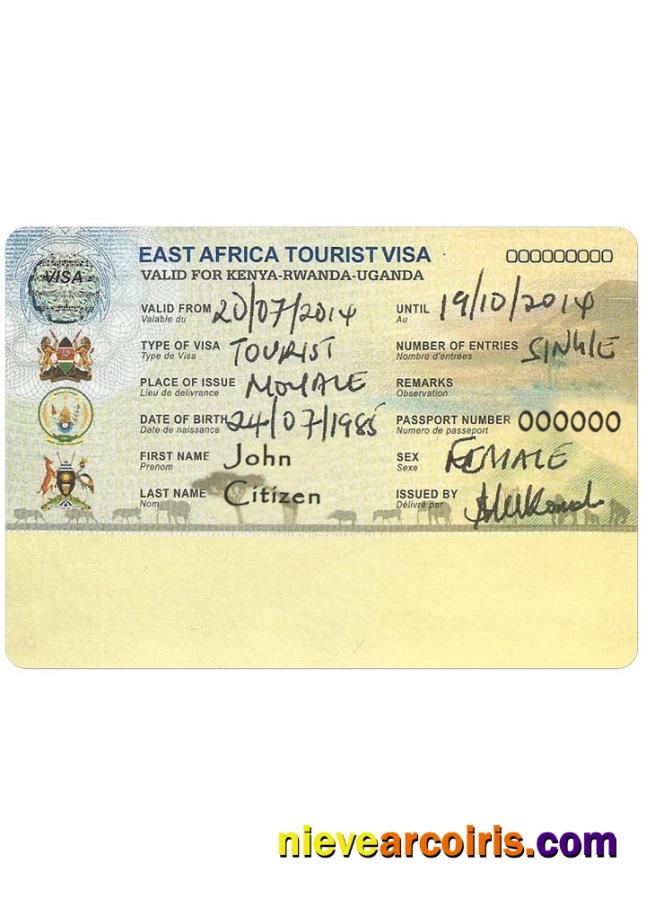 EAST AFRICA TOURIST VISA 000000000
VALID FOR KENYA-RWANDA-UGANDA
VISA
VALID FROM 20/07/2014 UNTIL 19/10/2014
Valable du Au
TYPE OF VISA TOURIST NUMBER OF ENTRIES SINGLE
Type de Visa Nombre d'entrées
PLACE OF ISSUE MOYALE REMARKS
Lieu de delivrance Observation
DATE OF BIRTH 24/07/1985 PASSPORT NUMBER 000000
Date de naissance Numero de passeport
FIRST NAME John SEX FEMALE
Prenom Sexe
LAST NAME Citizen ISSUED BY
Nom Délivré par
nievearcoiris.com